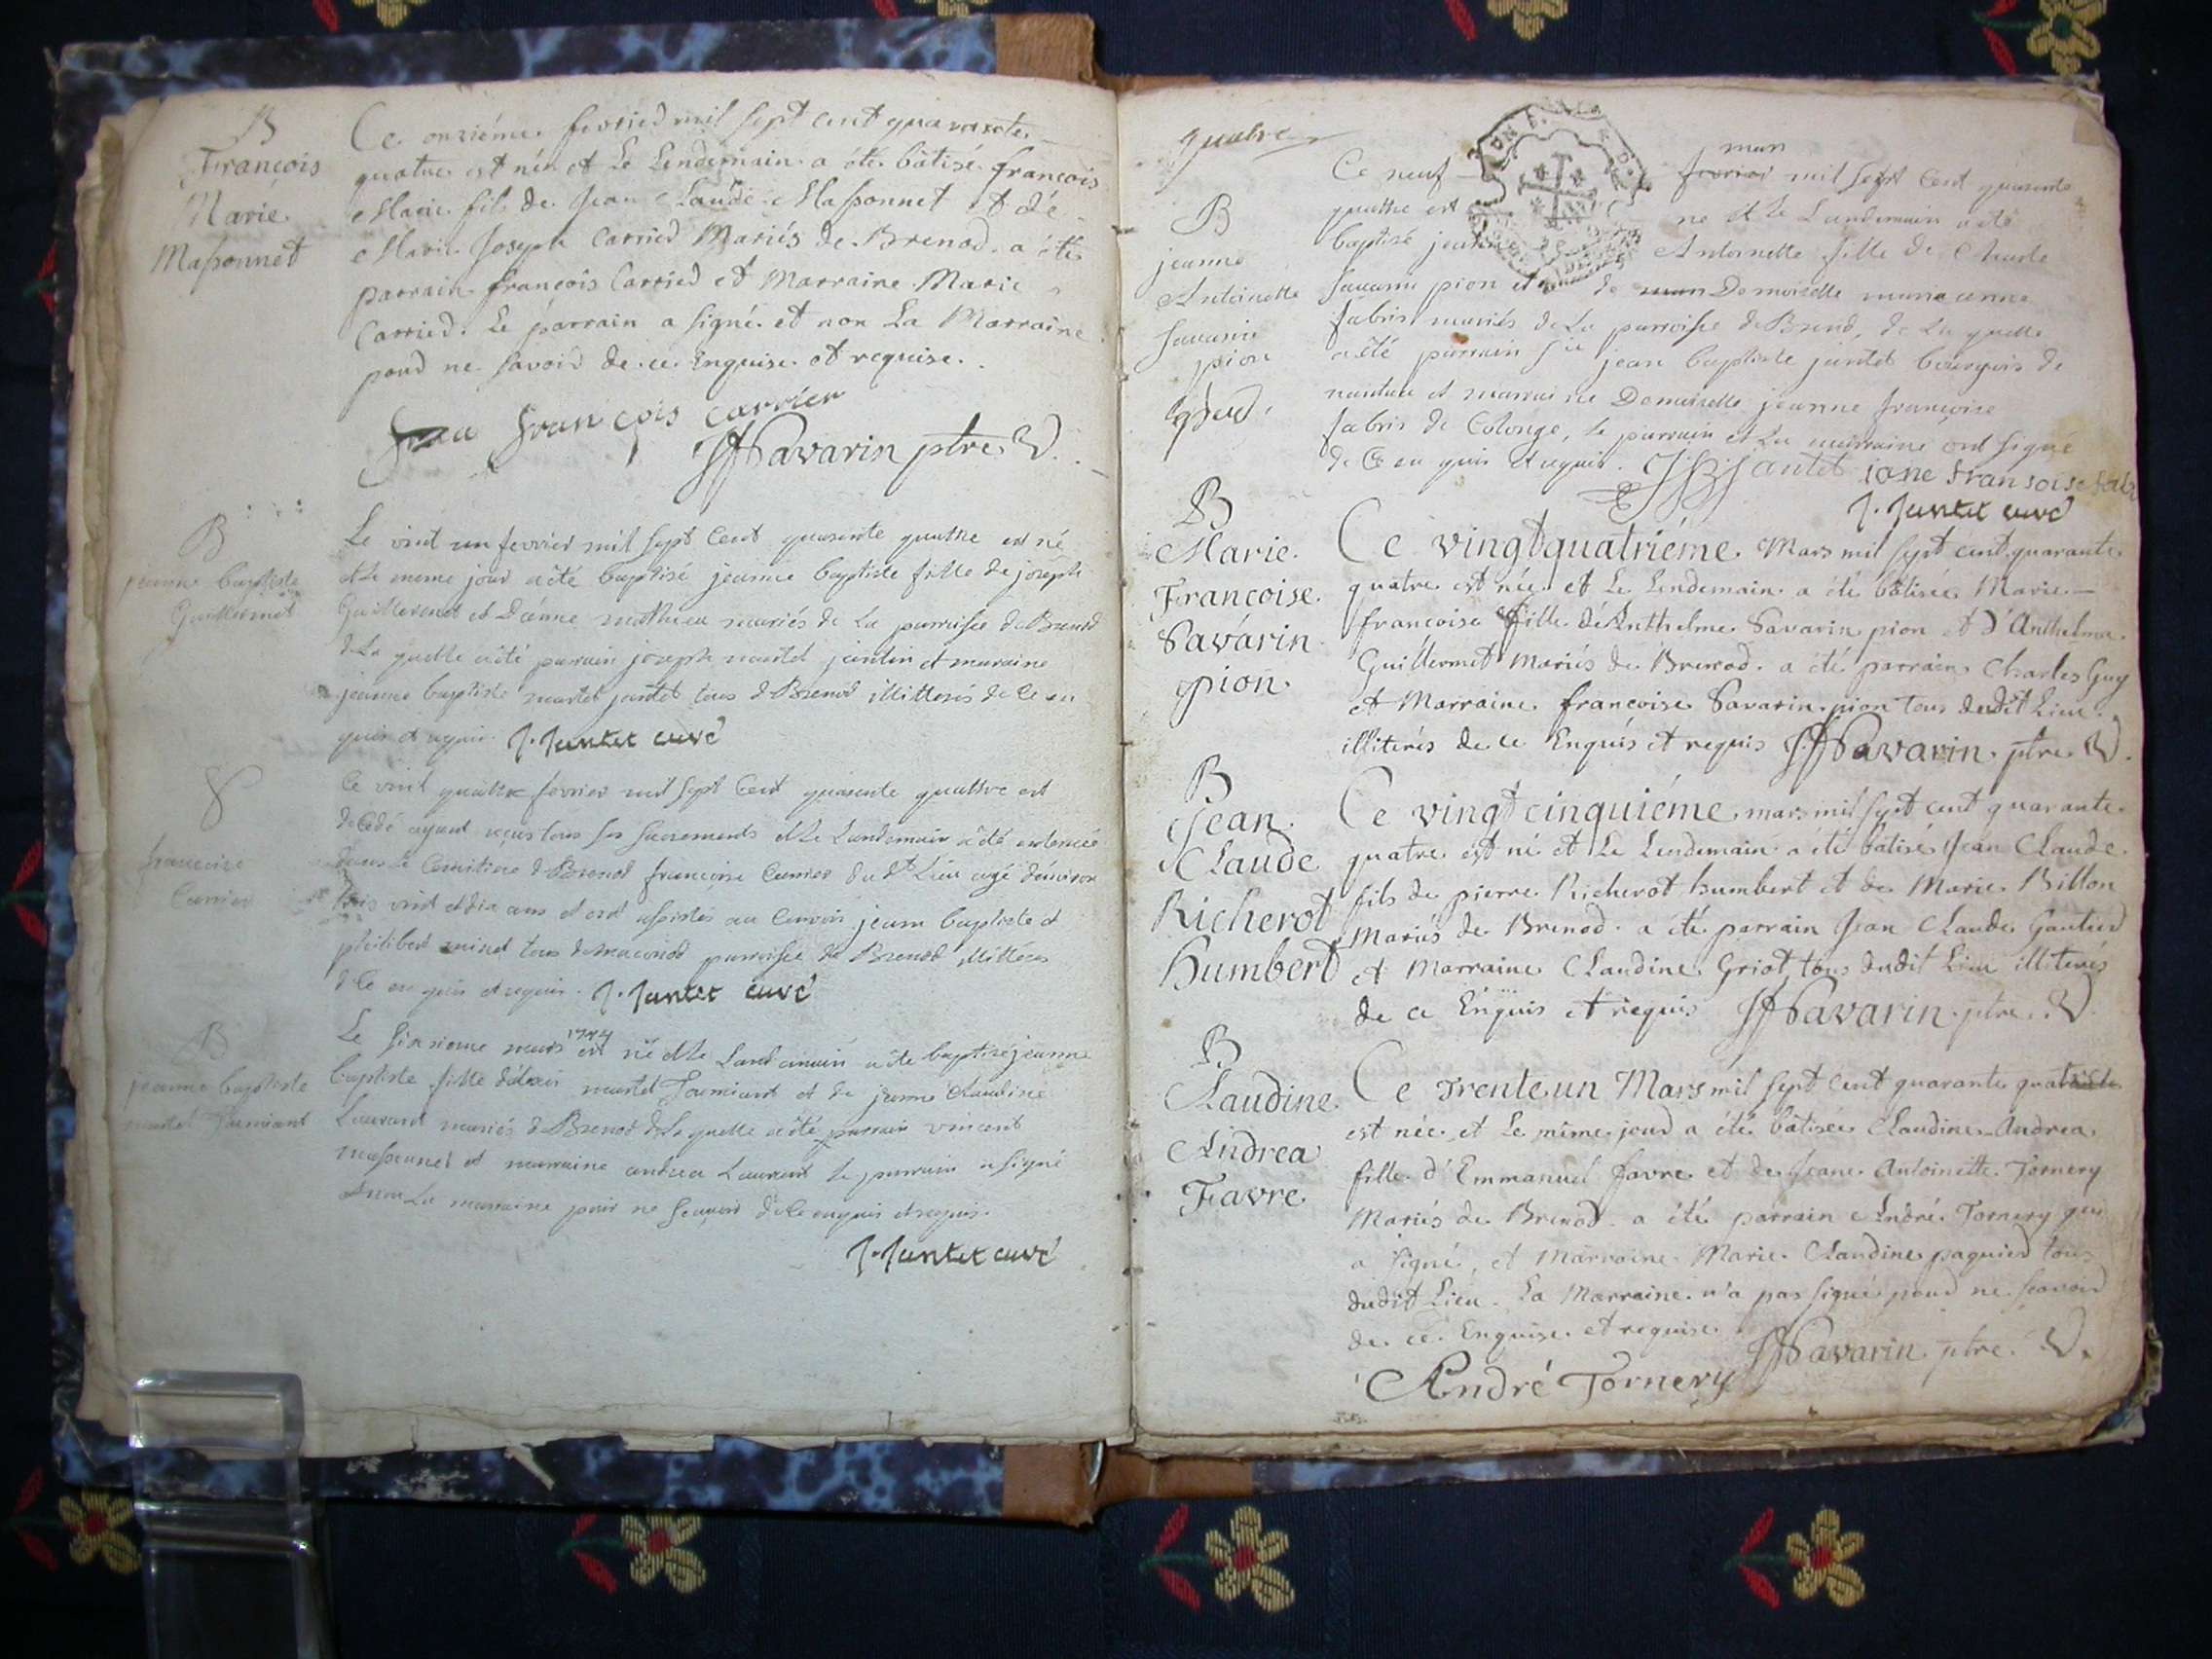 B
François
Marie
Massonnet
Ce onziéme fevrier mil sept cent quarante
quatre est né et Le Lendemain a été bâtisé françois
Marie fils de Jean Claude Massonnet et de
Marie Joseph Carrier Mariés de Brenod. a été
parrain françois Carrier et Marraine Marie
Carrier. Le parrain a signé et non La Marraine
pour ne savoir de ce Enquise et requise.
françois carrier
Savarin ptre V.
B
jeanne baptiste
Guillermet
Le vint un fevrier mil sept Cent quarente quattre est né
et le meme jour a été baptisé jeanne baptiste fille de joseph
Guillermet et mathieu mariés de La parroisse de Brenod
de La quelle a été parrain joseph martel jantin et maraine
jeanne baptiste martel jantet tous de Brenod illitterés de Ce en
quis et requis. J. Jantet curé
francoise
Carrier
Ce vint quattre fevrier mil sept Cent quarente quattre est
decedé ayant reçus tous ses sacrements et Le Landemain a été enterrée
dans le Cemitiere de Brenod françoise Carrier du dt Lieu agé denviron
trois vint et dix ans et ont assistés au Convoir jean baptiste et
philibert tous de parroisse de Brenod illitterés
de Ce en quis et requis. J. Jantet curé
B
jeanne baptiste
martel Jamiant
Le sixsieme mars 1744 est né et Le Landemain a été baptisé jeanne
baptiste fille martel Jamiant et de jeanne Claudine
Laurant mariés de Brenod de La quelle a été parrain vincent
massonnet et marraine andrea Laurant le parrain a signé
et non La marraine pour ne scavoir de Ce enquis et requis.
J. Jantet curé
quatre
B
jeanne
Antoinette
Savarin
pion
Ce neuf mars fevrier mil sept Cent quarente
quattre est né et Le Landemain a été
baptisé jeanne Antoinette fille de Claude
Savarin pion et de Demoiselle marie anne
fabris mariés de La parroisse de Brenod, de La quelle
a été parrain sie jean baptiste jantet bourgois de
nantua et marraine Demoiselle jeanne françoise
fabris de Colonge, le parrain et La marraine ont signé
de Ce en quis et requis. JB Jantet iane fransoise fabri
J. Jantet curé
B
Marie
Françoise
Savarin
pion
Ce vingtquatriéme Mars mil sept cent quarante
quatre est née et Le Lendemain a été bâtisée Marie
françoise fille d'Anthelme Savarin pion et d'Anthelma
Guillermet Mariés de Brenod. a été parrain Charles Guy
et Marraine françoise Savarin pion tous dudit Lieu
illiterés de ce Enquis et requis Savarin ptre V.
B
Jean
Claude
Richerot
Humbert
Ce vingt cinquiéme mars mil sept cent quarante
quatre est né et Le Lendemain a été bâtisé Jean Claude
fils de pierre Richerot humbert et de Marie Billon
Mariés de Brenod. a été parrain Jean Claude Gautier
et Marraine Claudine Griot tous dudit Lieu illiterés
de ce Enquis et requis Savarin ptre V.
B
Claudine
Andrea
Favre
Ce Trente un Mars mil sept cent quarante quatre
est née et Le même jour a été bâtisée Claudine Andrea
fille d'Emmanuel favre et de Jeane Antoinette Tornery
Mariés de Brenod. a été parrain André Tornery qui
a signé, et Marraine Marie Claudine paquier tous
dudit Lieu. La Marraine n'a pas signé pour ne scavoir
de ce Enquise et requise.
Savarin ptre V.
André Tornery